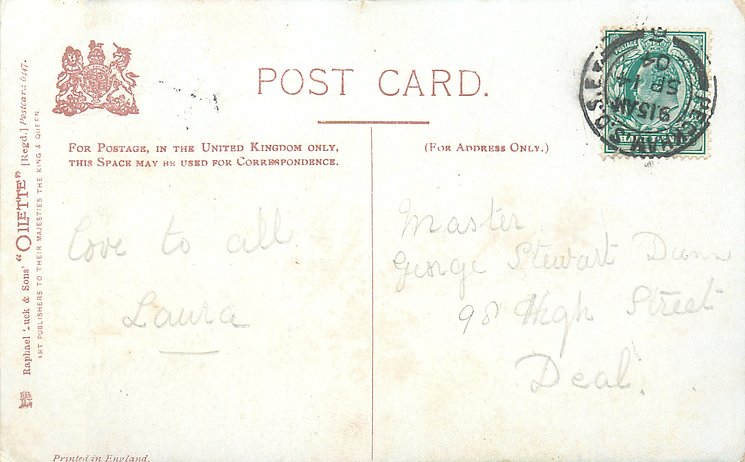 POST CARD.
FOR POSTAGE, IN THE UNITED KINGDOM ONLY,
THIS SPACE MAY BE USED FOR CORRESPONDENCE.
(FOR ADDRESS ONLY.)
Love to all
Laura
Master
George Stewart Dunn
98 High Street
Deal.
Raphael Tuck & Sons' "OILETTE" [Regd.] Postcard 6447.
ART PUBLISHERS TO THEIR MAJESTIES THE KING & QUEEN.
Printed in England.
PECKHAM S.O. S.E.
9.15AM
SP 14
04